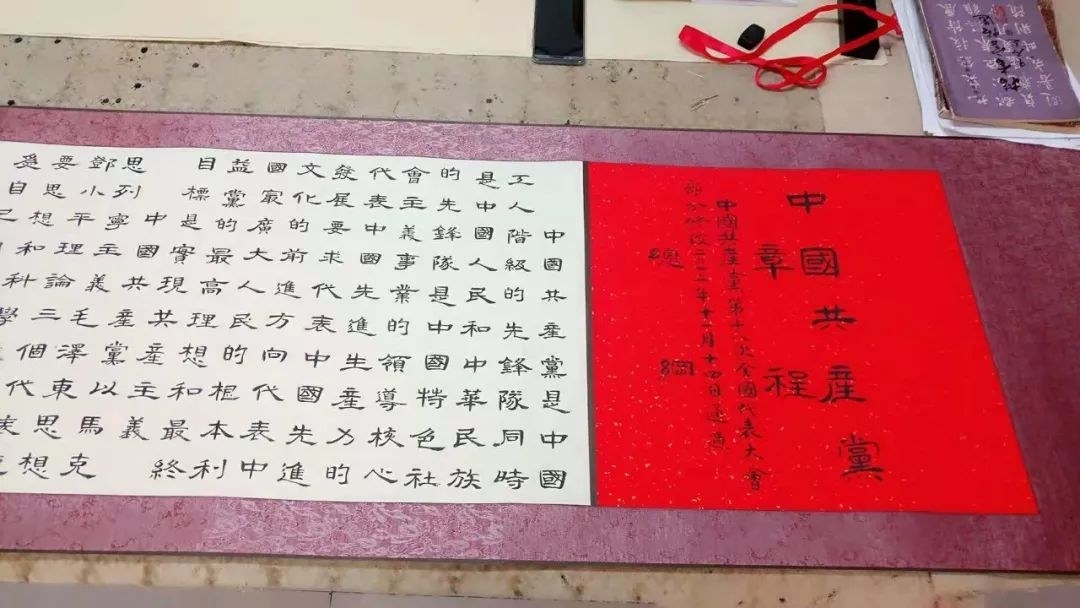 中國共產黨
章程
中國共產黨第十八次全國代表大會
部分修改二〇一二年十一月十四日通過
總綱
中國共產黨是中國
工人階級的先鋒隊同時
是中國人民和中華民族
的先鋒隊是中國特色社
會主義事業的領導核心
代表中國先進生產力的
發展要求代表中國先進
文化的前進方向代表中
國最廣大人民的根本利
益黨的最高理想和最終
目標是實現共產主義
中國共產黨以馬克
思列寧主義毛澤東思想
鄧小平理論三個代表
要思想和科學